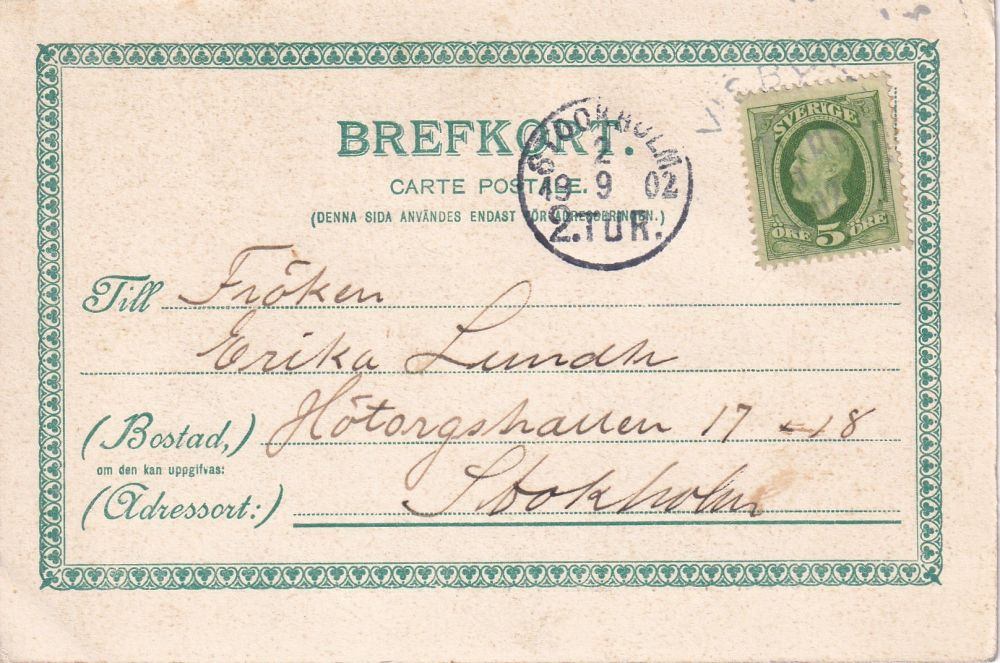 BREFKORT.
CARTE POSTALE.
(DENNA SIDA ANVÄNDES ENDAST FÖR ADRESSERINGEN.)
VISBY
STOCKHOLM
2
19 9 02
2.TUR.
SVERIGE
ÖRE 5 ÖRE
Till Fröken
Erika Lundh
(Bostad,) Hötorgshallen 17 - 18
om den kan uppgifvas:
(Adressort:) Stokholm